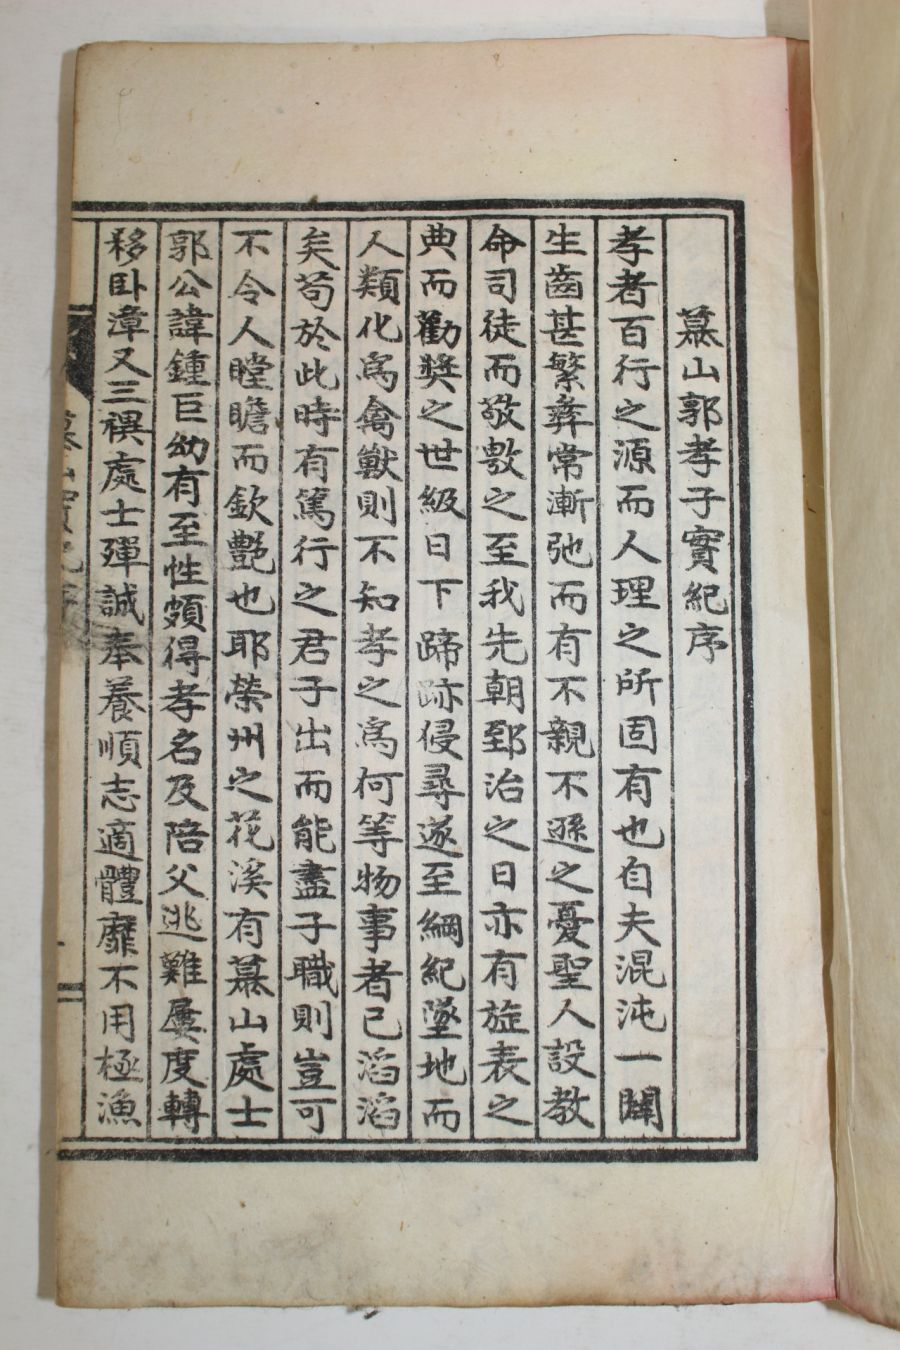 慕山郭孝子實紀序
孝者百行之源而人理之所固有也自夫混沌一闢
生齒甚繁彛常漸弛而有不親不遜之憂聖人設教
命司徒而敬敷之至我先朝郅治之日亦有旌表之
典而勸獎之世級日下蹄跡侵尋遂至綱紀墜地而
人類化爲禽獸則不知孝之爲何等物事者已滔滔
矣苟於此時有篤行之君子出而能盡子職則豈可
不令人瞠瞻而欽艷也耶榮州之花溪有慕山處士
郭公諱鍾巨幼有至性頗得孝名及陪父逃難屢度轉
移卧漳又三禩處士殫誠奉養順志適體靡不用極漁